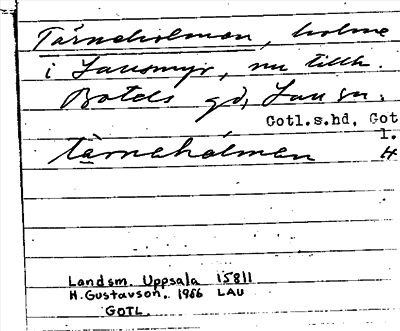 Tärneholmen, holme
i Lausmyr, nu tillh.
Botels gd, Lau sn.
Gotl.s.hd, Got
l.
tärnehólmen H
Landsm. Uppsala 15811
H. Gustavson. 1966 LAU
GOTL.